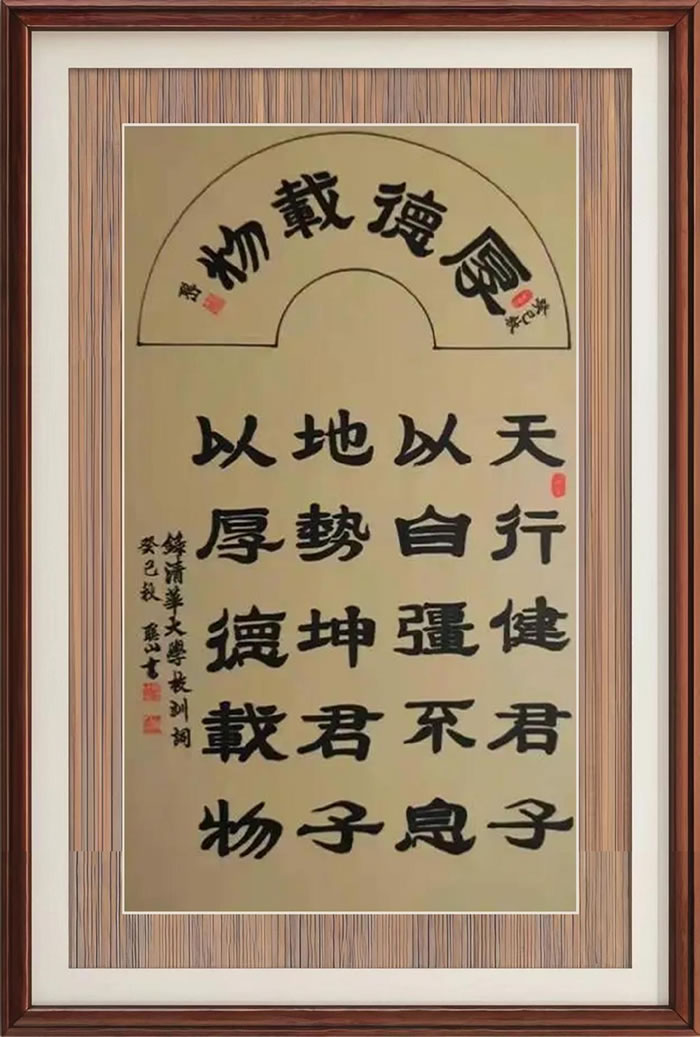 厚德載物
癸巳秋
天行健君子
以自彊不息
地勢坤君子
以厚德載物
錄清華大學校訓詞
癸巳秋 聖山書